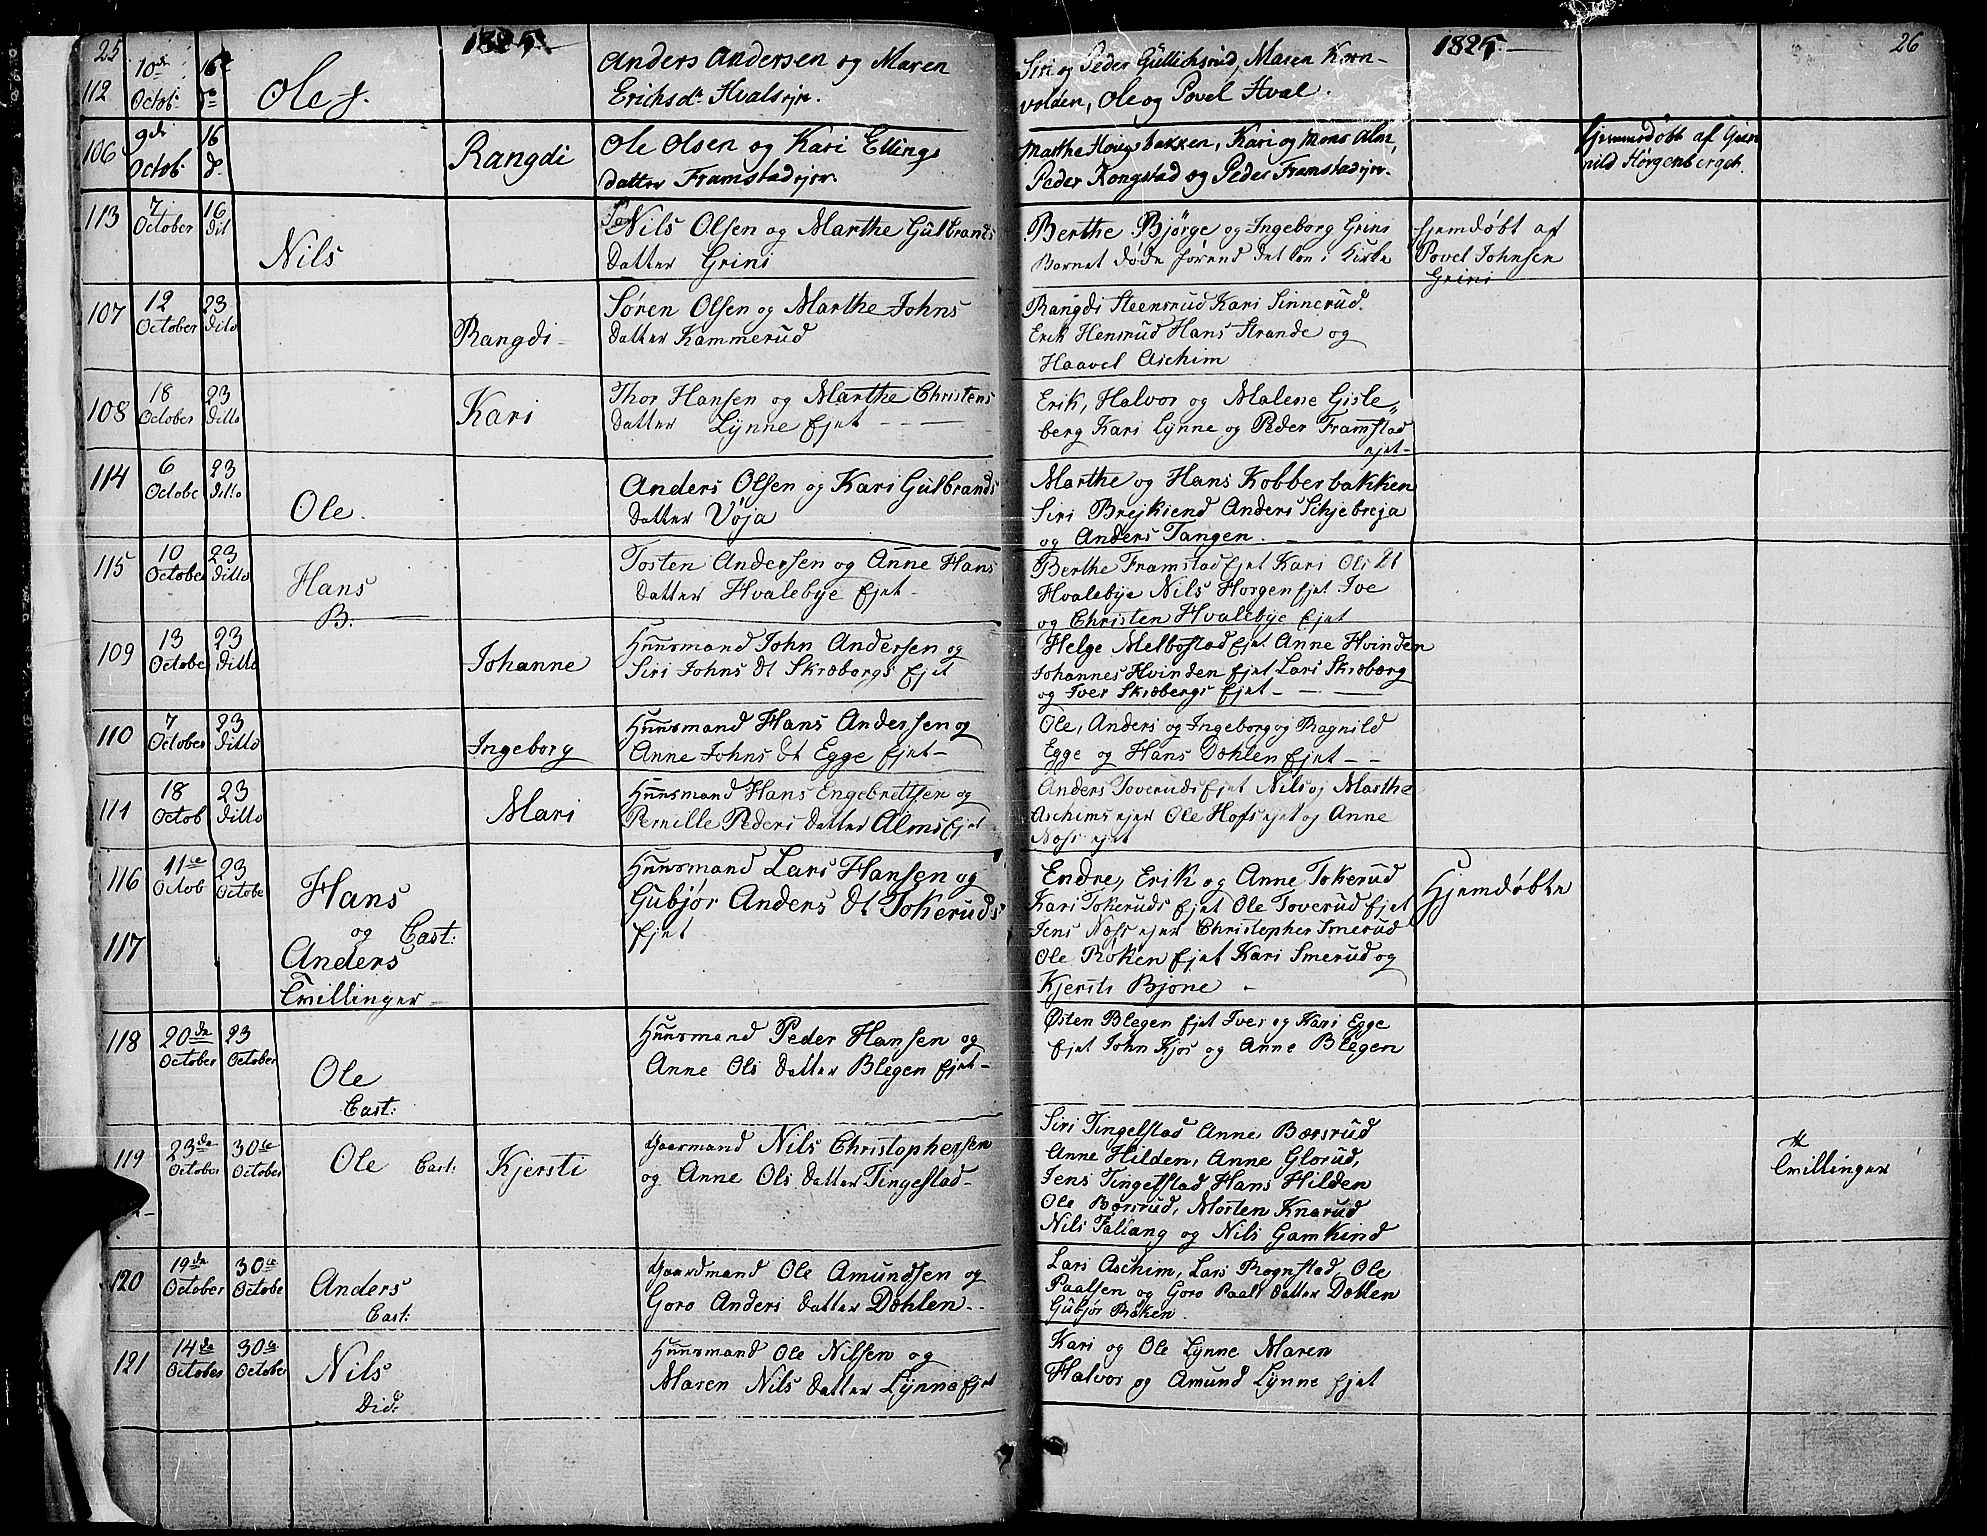 25
1825.
1825.
26
112
10de Octob:
16de
Ole
Anders Andersen og Maren
Erichsdr Hvalsejr.
Siri og Peder Gullichsrud, Maren Korn-
volden, Ole og Povel Hval.
106
9de Octob:
16 d.
Rangdi
Ole Olsen og Kari Ellings
datter Framstadejer.
Marthe Hougsbakken, Kari og Mons Alm,
Peder Rongstad og Peder Framstadejer.
hjemmedøbt af Gun
nild Horgenberget.
113
7 October
16 Dit
Nils
Nils Olsen og Marthe Gulbrands
datter Grini
Berthe Bjørge og Ingeborg Grini
Barnet døde førend det kom i Kirke
hjemdøbt af
Povel Johnsen
Grini
107
12 October
23 dito
Rangdi -
Søren Olsen og Marthe Johns
datter Kammerud
Rangdi Steensrud Kari Sinnerud.
Erik Hensrud Hans Strande og
Haavel Aschim
108
18 October
23 Ditto
Kari
Thor Hansen og Marthe Christens
datter Lynne Ejet - - -
Erik, Halvor og Malene Gisle„
berg Kari Lynne og Peder Framstad
ejet-
114
6 Octobe
23 ditto
Ole.
Anders Olsen og Kari Gulbrands
datter Vøja
Marthe og Hans Kobberbakken
Siri Brejkiend Anders Schjebreja
og Anders Tangen.
115
10 October
23 Ditto
Hans
B.
Tosten Andersen og Anne Hans
datter Hvalebye Ejet -
Berthe Framstad Ejet Kari Ols dt
Hvalebye Nils Horgen Ejet Ive
og Christen Hvalebye Ejet
109
13 Octobe
23 Ditto
Johanne
Huusmand John Andersen og
Siri Johns dt Skrøbergs Ejet
Helge Melbostad Ejet Anne Hvinden
Johannes Hvinden Ejet Lars Skrøberg
og Iver Skrøbergs Ejet - -
110
7 October
23 Ditto
Ingeborg
Huusmand Hans Andersen og
Anne Johns dt Egge Ejet -
Ole, Anders og Ingeborg og Ragnild
Egge og Hans Dæhlen Ejet - -
111
18 Octob
23 Ditto
Mari
Huusmand Hans Engebrettsen og
Pernille Peders datter Alms Ejet
Anders Toveruds Ejet Nils og Marthe
Aschims ejer Ole Hofs ejet og Anne
Næss ejet
116
11te Octob
23 Octobe
Hans
og Cast:
117
Anders
Tvillinger -
Huusmand Lars Hansen og
Gubjør Anders dt Tokeruds
Ejet
Endre, Erik og Anne Tokerud
Kari Tokeruds Ejet Ole Toverud Ejet
Jens Næss ejer Christopher Smerud
Ole Røken Ejet Kari Smerud og
Kjersti Bjone -
Hjemdøbte
118
20de October
23 October
Ole
Cast:
Huusmand Peder Hansen og
Anne Ols datter Blegen Ejet -
Østen Blegen Ejet Iver og Kari Egge
Ejet John Kjos og Anne Blegen
119
23de October
30te October
Ole Cast:
Kjersti
Gaarmand Nils Christophersen
og Anne Ols datter Tingelstad -
Siri Tingelstad Anne Børsrud
Anne Hilden, Anne Glorud,
Jens Tingelstad Hans Hilden
Ole Børsrud, Morten Knarud
Nils Fallang og Nils Gamkind
Tvillinger
120
19de October
30te Octobe
Anders
Cast:
Gaardmand Ole Amundsen og
Goro Anders datter Dæhlen - .
Lars Aschim, Lars Rognstad, Ole
Paalsen og Goro Paals datter Dæhlen
Gubjør Røken.
121
14de October
30te October
Nils
Did:
Huusmand Ole Nilsen og
Maren Nils datter Lynne Ejet
Kari og Ole Lynne Maren
Halvor og Amund Lynne Ejet